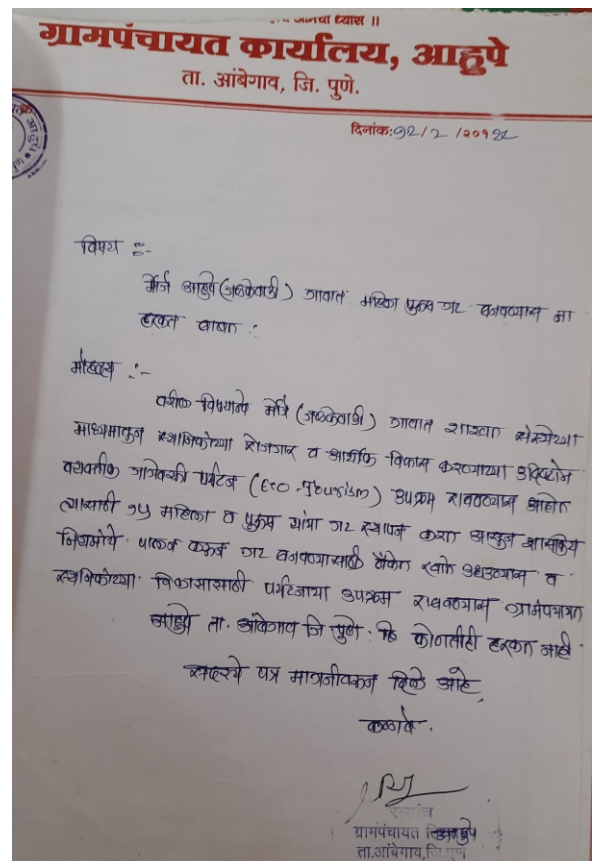 आमचा ध्यास ॥
ग्रामपंचायत कार्यालय, आहुपे
ता. आंबेगाव, जि. पुणे.
दिनांक:१२/२/२०१२२
विषय :-
मौजे आहुपे (जळकेवाडी) गावात महिला पुरुष गट बनवण्यास ना
हरकत बाबत :
मोहद्य :-
वरील विषयान्वे मौजे (जळकेवाडी) गावात शाश्वत संस्थेच्या
माध्यमातून स्थानिकांच्या रोजगार व आर्थीक विकास करण्याच्या उदिष्टाने
पर्यटन (Eco-Tourism) उपक्रम राबवण्यास आहोत
त्यासाठी १५ महिला व पुरुष यांचा गट स्थापन करत असून शासकिय
नियमांचे पालन करून गट बनवण्यासाठी बँकेत खाते उघडण्यास व
स्थानिकांच्या विकासासाठी पर्यटनाचा उपक्रम राबवण्यास ग्रामपंचायत
आहुपे ता. आंबेगाव जि पुणे. हि कोणतीही हरकत नाही
सदरचे पत्र मागणीवरून दिले आहे
कळावे.
सरपंच
ग्रामपंचायत आहुपे
ता.आंबेगाव,जि.पुणे